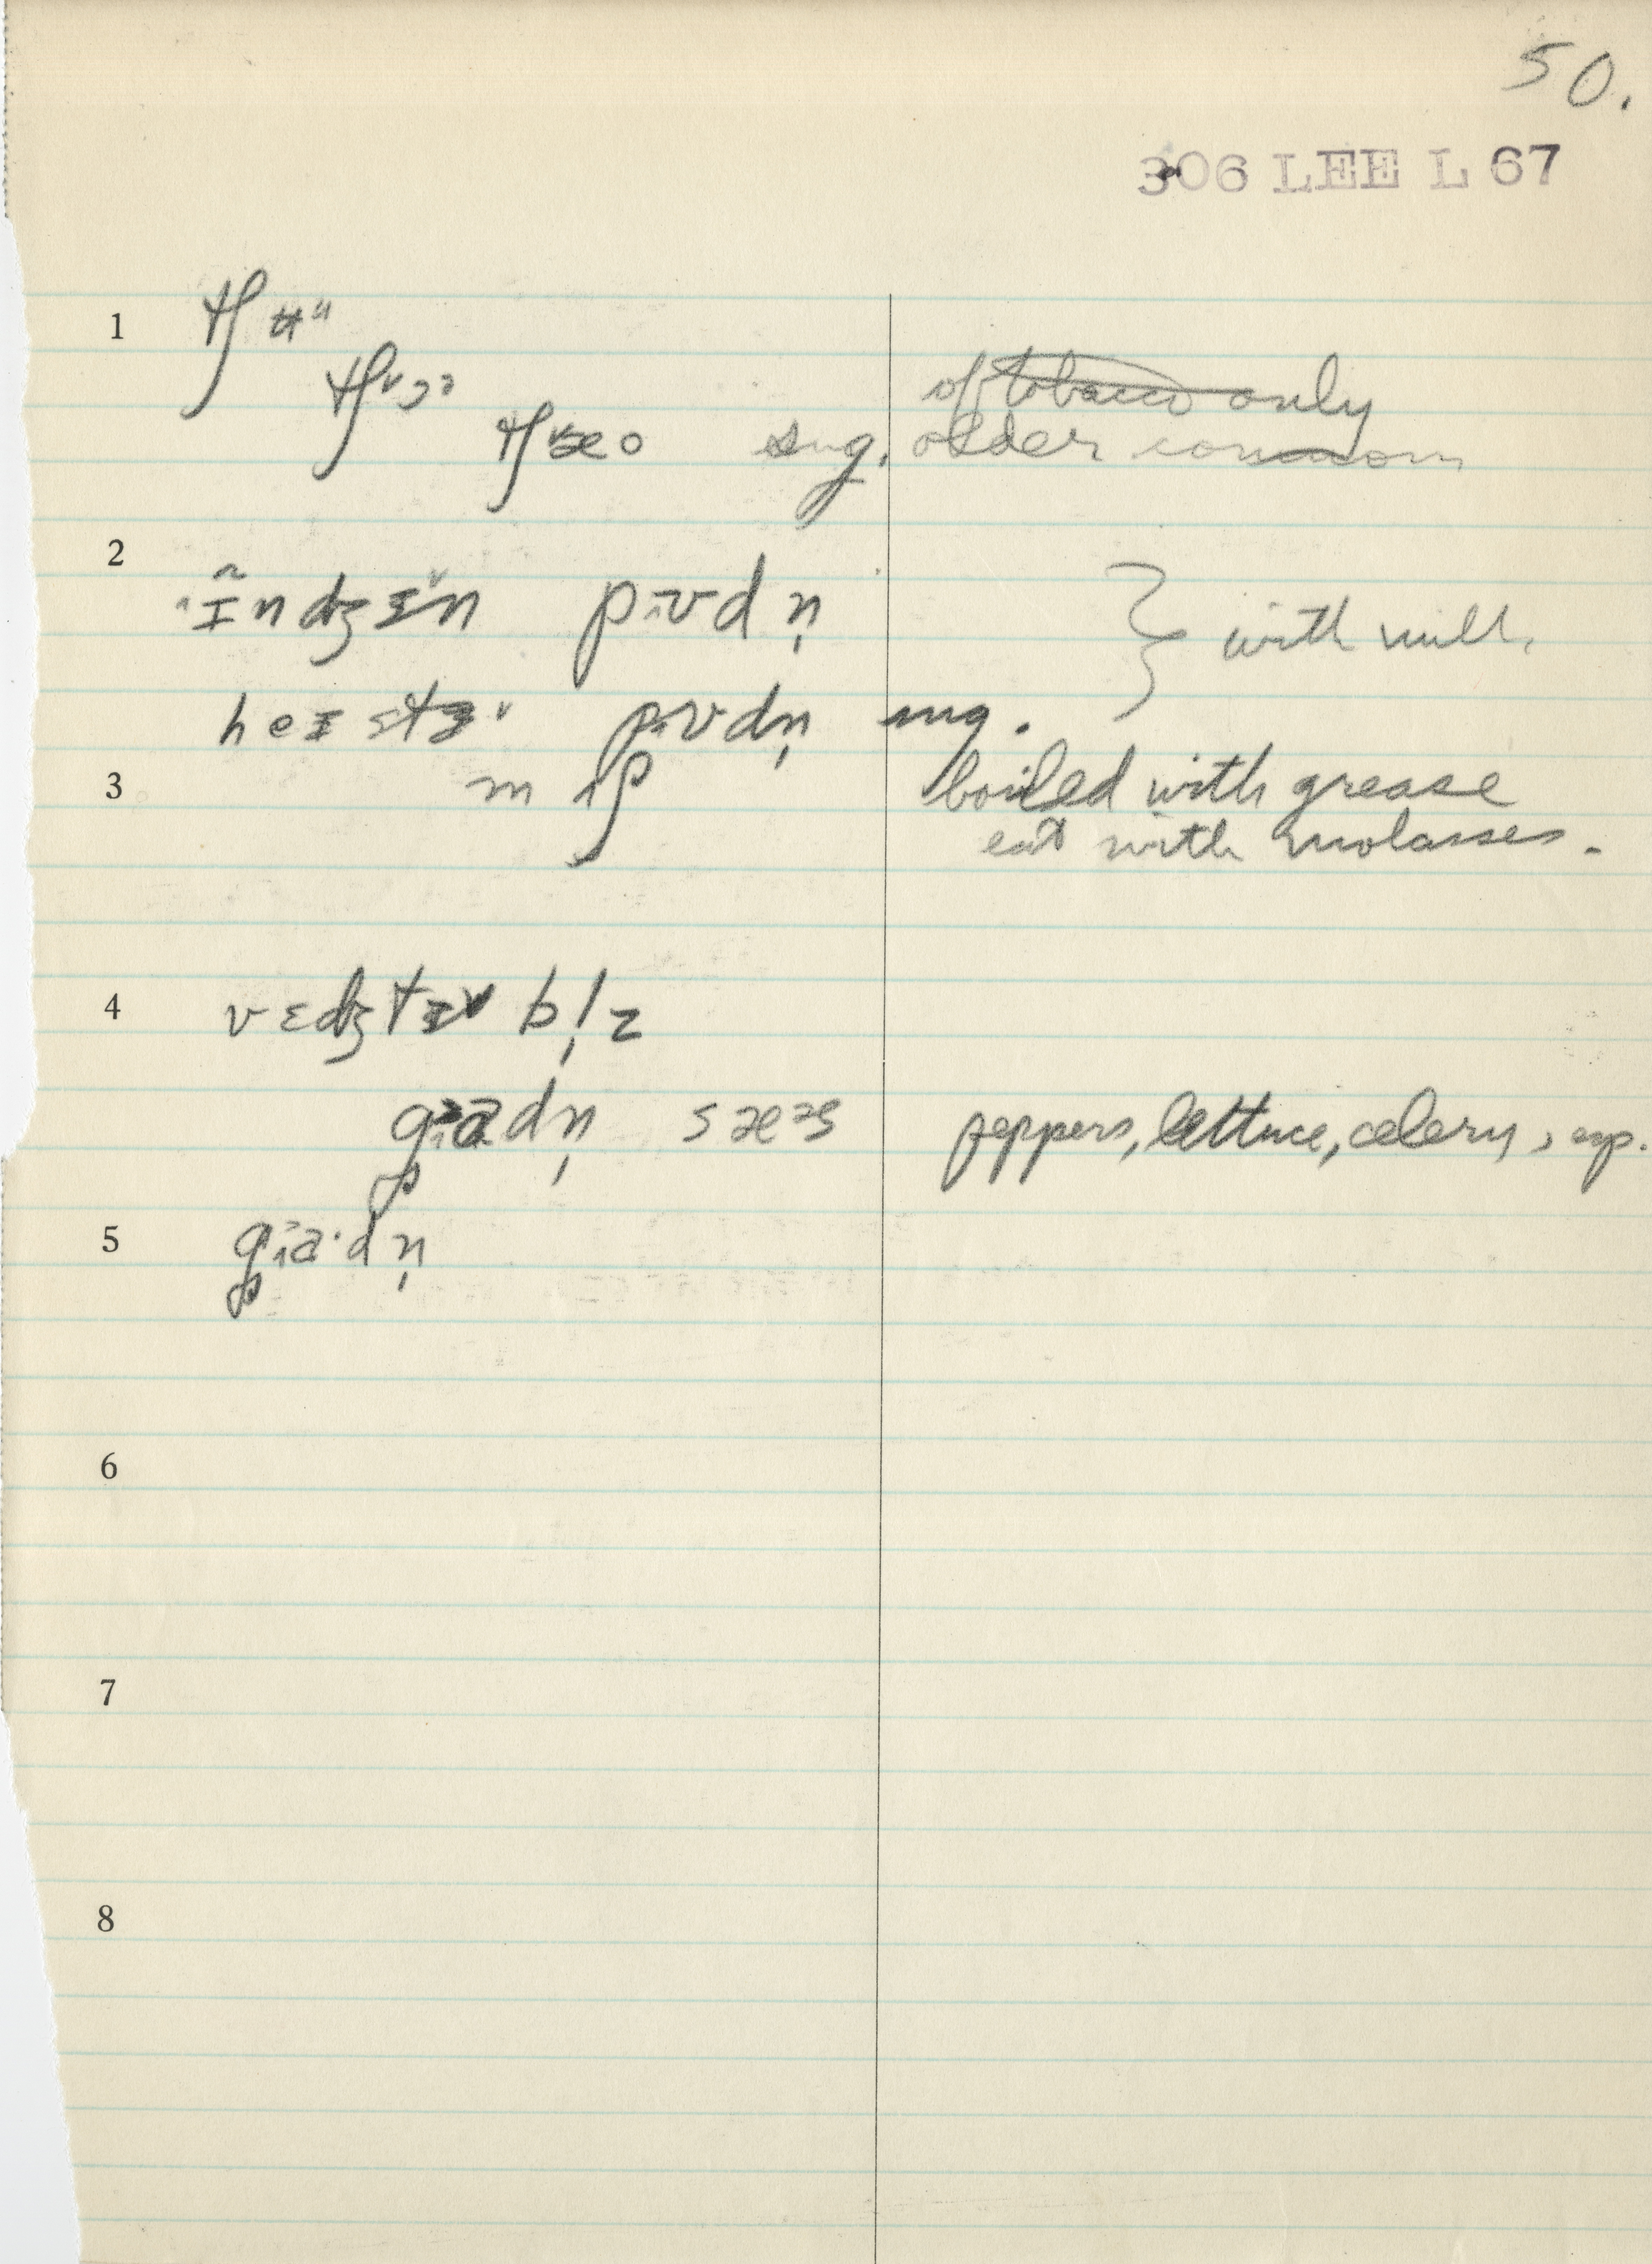 50.
306 LEE L 67
1 tʃʉᵘ
tʃᶹɔᵓ
of tobacco only
tʃᶹæo sug. older common
2 ɪ̃ndʒɪn pᵻʊdn̩ } with milk
heɪstɪ pᵻʊdn̩ sug.
3 mʌʃ boiled with grease
eat with molasses.
4 vɛdʒtɪbl̩z
gɑdn̩ sæs peppers, lettuce, celery, esp.
5 gɑ·dn̩
6
7
8